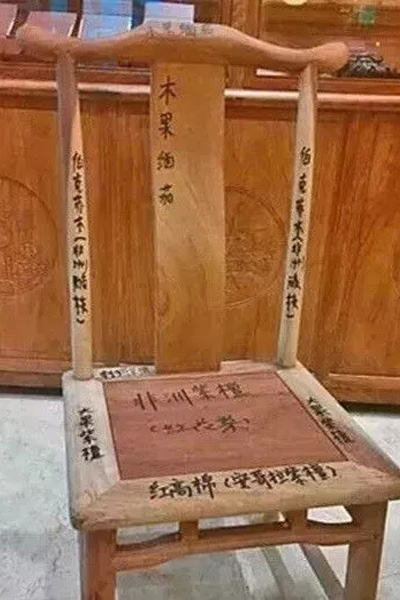 木果缅茄
木果缅茄
伯克苏木(非洲酸枝)
伯克苏木(非洲酸枝)
非洲紫檀
(红花梨)
大果紫檀
大果紫檀
红高棉(安哥拉紫檀)